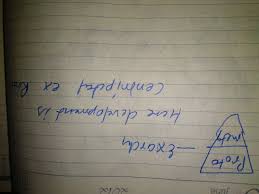 Proto
— Exarch
Here development is
Centripetal ex